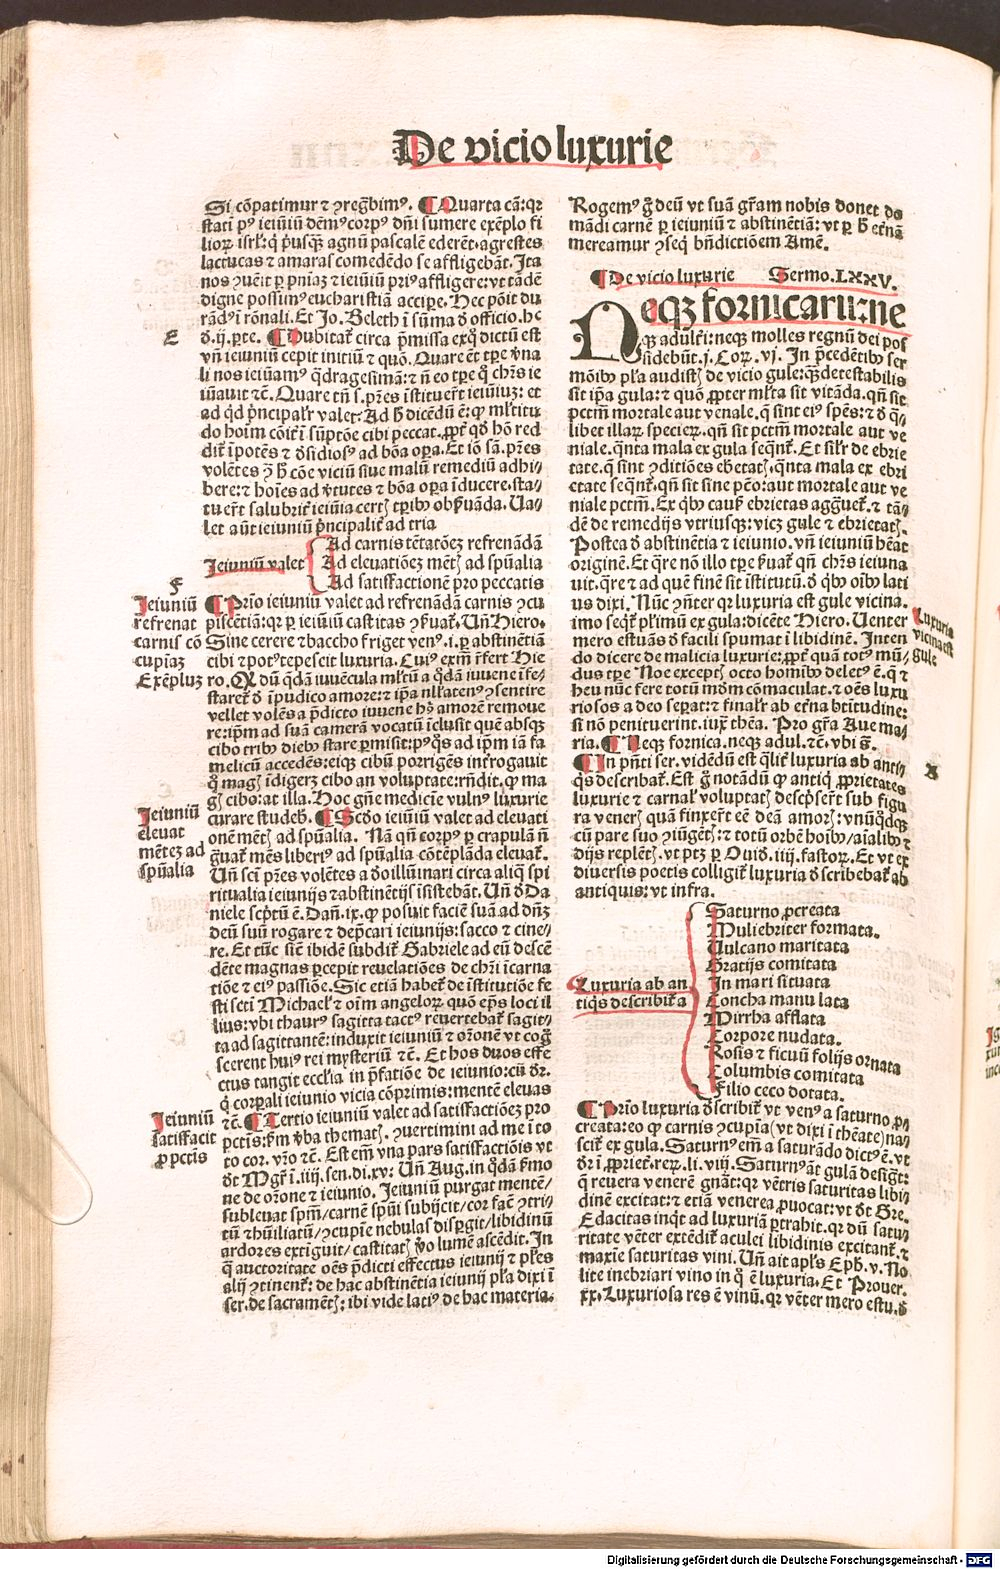 De vicio luxurie
Si cōpatimur ⁊ ꝯregͣbim⁹. ¶ Quarta cā: qꝛ
stati p⁹ ieiuniū dēm⁹ corp⁹ dn̄i sumere exēplo fi
lioꝝ isrl̓: q̇ pusqꝫ agnū pascalē ederēt, agrestes
lactucas ⁊ amaras comedēdo se affligebāt. Ita
nos ꝯuēit ꝑ pniāꝫ ⁊ ieiuniū pri⁹ affligere: vt tādē
digne possim⁹ eucharistiā accipe. Hec pōit du
rād⁹ ī rōnali. Et Jo. Beleth ī sūma d̓ officio. hc̄
d̓. ij. ꝑte. ¶ Dubitat᷑ circa p̄missa exq̇ dictū est
E
vn̄ ieiuniū cepit initiū ⁊ quō. Quare ēt tꝑe v̓na
li nos ieiunam⁹ q̇dragesimā: ⁊ n̄ eo tꝑe q̇ chr̄s ie
iunauit ⁊c̄. Quare tn̄ s. pr̄es īstituer̄t ieiuniuꝫ: et
ad qd̓ p̄ncipalr̓ valet. Ad h̓ dicēdū ē: ꝙ ml̓titu
do hoīm cōit̓ ī sūptōe cibi peccat. ꝓpt̓ qd̓ hō red
dit̓ īpotēs ⁊ d̓sidios⁹ ad bōa oꝑa. Et iō sā. pr̄es
volētes ꝯ h̓ cōe viciū siue malū remediū adhi/
bere: ⁊ hoīes ad v̓tutes ⁊ bōa oꝑa īducere. sta/
tuer̄t salubrit̓ ieiūia cert̄ tꝑib⁹ obẜuāda. Ua/
let aūt ieiuniū p̄ncipalit̓ ad tria
Ieiuniū valet
Ad carnis tētatōeꝫ refrenādā
Ad eleuatiōeꝫ mēt̄ ad spūalia
Ad satisfactionē pro peccatis
F
Ieiuniū
refrenat
carnis cō
cupīaꝫ
Exēpluꝫ
¶ Prīo ieiuniū valet ad refrenādā carnis ꝯcu
piscētiā: qꝛ ꝑ ieiuniū castitas ꝯẜuat̓. Un̄ Hiero.
Sine cerere ⁊ baccho friget ven⁹. i. ꝑ abstinētiā
cibi ⁊ pot⁹ tepescit luxuria. Cui⁹ exm̄ īfert Hie
ro. Q̓ dū q̇dā iuuēcula ml̓tū a q̇dā iuuene īfe/
staret̓ d̓ īpudico amore: ⁊ ip̄a nl̓laten⁹ ꝯsentire
vellet volēs a p̄dicto iuuene h⁹ amorē remoue
re: ip̄m ad suā camerā vocatū īclusit quē absqꝫ
cibo trib⁹ dieb⁹ stare ꝑmisit: p⁹ q̇s ad ip̄m iā fa
melicū accedēs: eiqꝫ cibū porrigēs intꝛogauit
q̇ mag̓ īdigerꝫ cibo an voluptate: rn̄dit. ꝙ ma
g̓ cibo: at illa. Hoc gn̄e medicīe vuln⁹ luxurie
curare studeb̓. ¶ Scd̓o ieiuniū valet ad eleuati
Ieiuniū
eleuat
mētez ad
spūalia
onē mēt̄ ad spūalia. Nā qn̄ corp⁹ ꝑ crapulā n̄
g̓uat̓ mēs liberi⁹ ad spūalia cōtēplāda eleuat̓.
Un̄ sct̄i pr̄es volētes a d̓o illūinari circa aliq̇ spi
ritualia ieiunijs ⁊ abstinētijs īsistebāt. Un̄ d̓ Da
niele scptū ē. Dan̄. ix. ꝙ posuit faciē suā ad dn̄ꝫ
deū suū rogare ⁊ dep̄cari ieiunijs: sacco ⁊ cine/
re. Et tūc sic̄ ibidē subdit̓ Gabriele ad eū descē
dēte magnas ꝑcepit reuelatiōes de chr̄i īcarna
tiōe ⁊ ei⁹ passiōe. Sic etiā habet̓ de īstitutiōe fe
sti sct̄i Michael̓ ⁊ oīm angeloꝝ quō ep̄us loci il
lius: vbi thaur⁹ sagitta tact⁹ reuertebat̓ sagit/
ta ad sagittantē: induxit ieiuniū ⁊ orōnē vt cog̓
scerent hui⁹ rei mysteriū ⁊c̄. Et hos duos effe
ctus tangit eccl̓ia in p̄fatiōe de ieiunio: cū dr̄.
q̇ corpali ieiunio vicia cōprimis: mentē eleuas
⁊c̄. ¶ Tertio ieiuniū valet ad satisfactiōeꝫ pro
Ieiuniū
satisfacit
ꝓ pctīs
pctīs: ẜm v̓ba themat̄. ꝯuertimini ad me ī to
to cor. vr̄o ⁊c̄. Est em̄ vna pars satisfactiōis vt
d̓t Mgr̄ ī. iiij. sen. di. xv. Un̄ Aug. in q̇dā ẜmo
ne de orōne ⁊ ieiunio. Ieiuniū purgat mentē/
subleuat spm̄/ carnē spūi subijcit/ cor fac̄ ꝯtri/
tū ⁊ hūiliatū/ ꝯcupīe nebulas dispgit/ libidinū
ardores extiguit/ castitat̄ v̓o lumē ascēdit. In
q̇ auctoritate oēs p̄dicti effectus ieiunij ⁊ pl̓es
alij ꝯtinent̓: de hac abstinētia ieiunij pl̓a dixi ī
ser. de sacramēt̄: ibi vide lati⁹ de hac materia.
Rogem⁹ g̓ deū vt suā gr̄am nobis donet do
mādi carnē ꝑ ieiuniū ⁊ abstinētiā: vt ꝑ h̓ et̓nā
mereamur ꝯseq̇ bn̄dictiōem Amē.
¶ De vicio luxurie Sermo. LXXV.
Neqꝫ fornicarij: ne
qꝫ adulteri: neqꝫ molles regnū dei pos
sidebūt. j. Coꝝ. vj. In p̄cedētib⁹ ser
mōib⁹ pl̓a audist̄ de vicio gule: qꝫ detestabilis
sit ip̄a gula: ⁊ quō ꝓpter ml̓ta sit vitāda. qn̄ sit
pctm̄ mortale aut venale. q̇ sint ei⁹ spēs: ⁊ d̓ q̇/
libet illaꝝ specieꝝ. qn̄ sit pctm̄ mortale aut ve
niale. q̇nta mala ex gula seqn̄t̓. Et sil̓r de ebrie
tate. q̇ sint ꝯditiōes eb̓etat̄. q̇nta mala ex ebri
etate seqn̄t̓. qn̄ sit sine pc̄o: aut mortale aut ve
niale pctm̄. Ex qb⁹ caus̄ ebrietas agg̓uet̓. ⁊ tā/
dē de remedijs vtriusqꝫ: vicꝫ gule ⁊ ebrietat̄.
Postea d̓ abstinētia ⁊ ieiunio. vn̄ ieiuniū hēat
originē. Et q̄re nō illo tꝑe ẜuat̓ qn̄ chr̄s ieiuna
uit. q̄re ⁊ ad quē finē sit īstitutū. d̓ qb⁹ oīb⁹ lati
us dixi. Nūc ꝯn̄ter qꝛ luxuria est gule vicina.
imo seqt̓ pl̓imū ex gula: dicēte Hiero. Uenter
mero estuās d̓ facili spumat ī libidinē. Inten
Luxuria
vicina est
gule
do dicere de malicia luxurie: ꝓpt̓ quā tot⁹ mū/
dus tꝑe Noe exceptj octo homib⁹ delet⁹ ē. q̇ ⁊
heu nūc fere totū mūdm cōmaculat. ⁊ oēs luxu
riosos a deo seꝑat: ⁊ finalr̓ ab et̓na btītudine:
si nō penituerint. iux̄ thēa. Pro gr̄a Aue ma/
ria. ¶ Neqꝫ fornica. neqꝫ adul. ⁊c̄. vbi s̓.
A
¶ In p̄nti ser. vidēdū est qlit̓ luxuria ab anti/
q̇s describat̓. Est g̓ notādū ꝙ antiq̇ ꝓprietates
luxurie ⁊ carnal̓ voluptat̄ descpser̄t sub figu
ra vener̄ quā finxer̄t eē deā amor̄: vnūqd̓qꝫ
cū pare suo ꝯiūget̄: ⁊ totū orbē hoīb⁹/ aīalib⁹ ⁊
dijs replēt̄. vt ptꝫ ꝑ Ouid̓. iiij. fastoꝝ. Et vt ex
diuersis poetis colligit̓ luxuria d̓scribebat̓ ab
antiquis: vt infra.
Luxuria ab an
tiq̇s describit̓ a
Saturno ꝓcreata
Muliebriter formata.
Uulcano maritata
Gratijs comitata
In mari situata
Concha manu lata
Mirrha afflata
Corpore nudata.
Rosis ⁊ ficuū folijs ornata
Columbis comitata
Filio ceco dotata.
¶ Prīo luxuria d̓scribit̓ vt ven⁹ a saturno ꝓ/
creata: eo ꝙ carnis ꝯcupīa (vt dixi ī thēate) na/
scit̓ ex gula. Saturn⁹ em̄ a saturādo dict⁹ ē. vt
d̓r ī ꝓpriet̓. reꝝ. li. viij. Saturn⁹ āt gulā desigt̄:
q̇ reuera venerē gnāt: qꝛ vētris saturitas libi/
dinē excitat: ⁊ etiā venerea ꝓuocat: vt d̓t Gre.
Edacitas inqt̓ ad luxuriā ꝑtrahit. qꝛ dū satu/
ritate vēter extēdit̓ aculei libidinis excitant̓. ⁊
maxīe saturitas vini. Un̄ ait apl̓s Eph̓. v. No
lite inebriari vino in q̇ ē luxuria. Et Prouer.
xx. Luxuriosa res ē vinū. qꝛ vēter mero estu. d̓
Digitalisierung gefördert durch die Deutsche Forschungsgemeinschaft - DFG